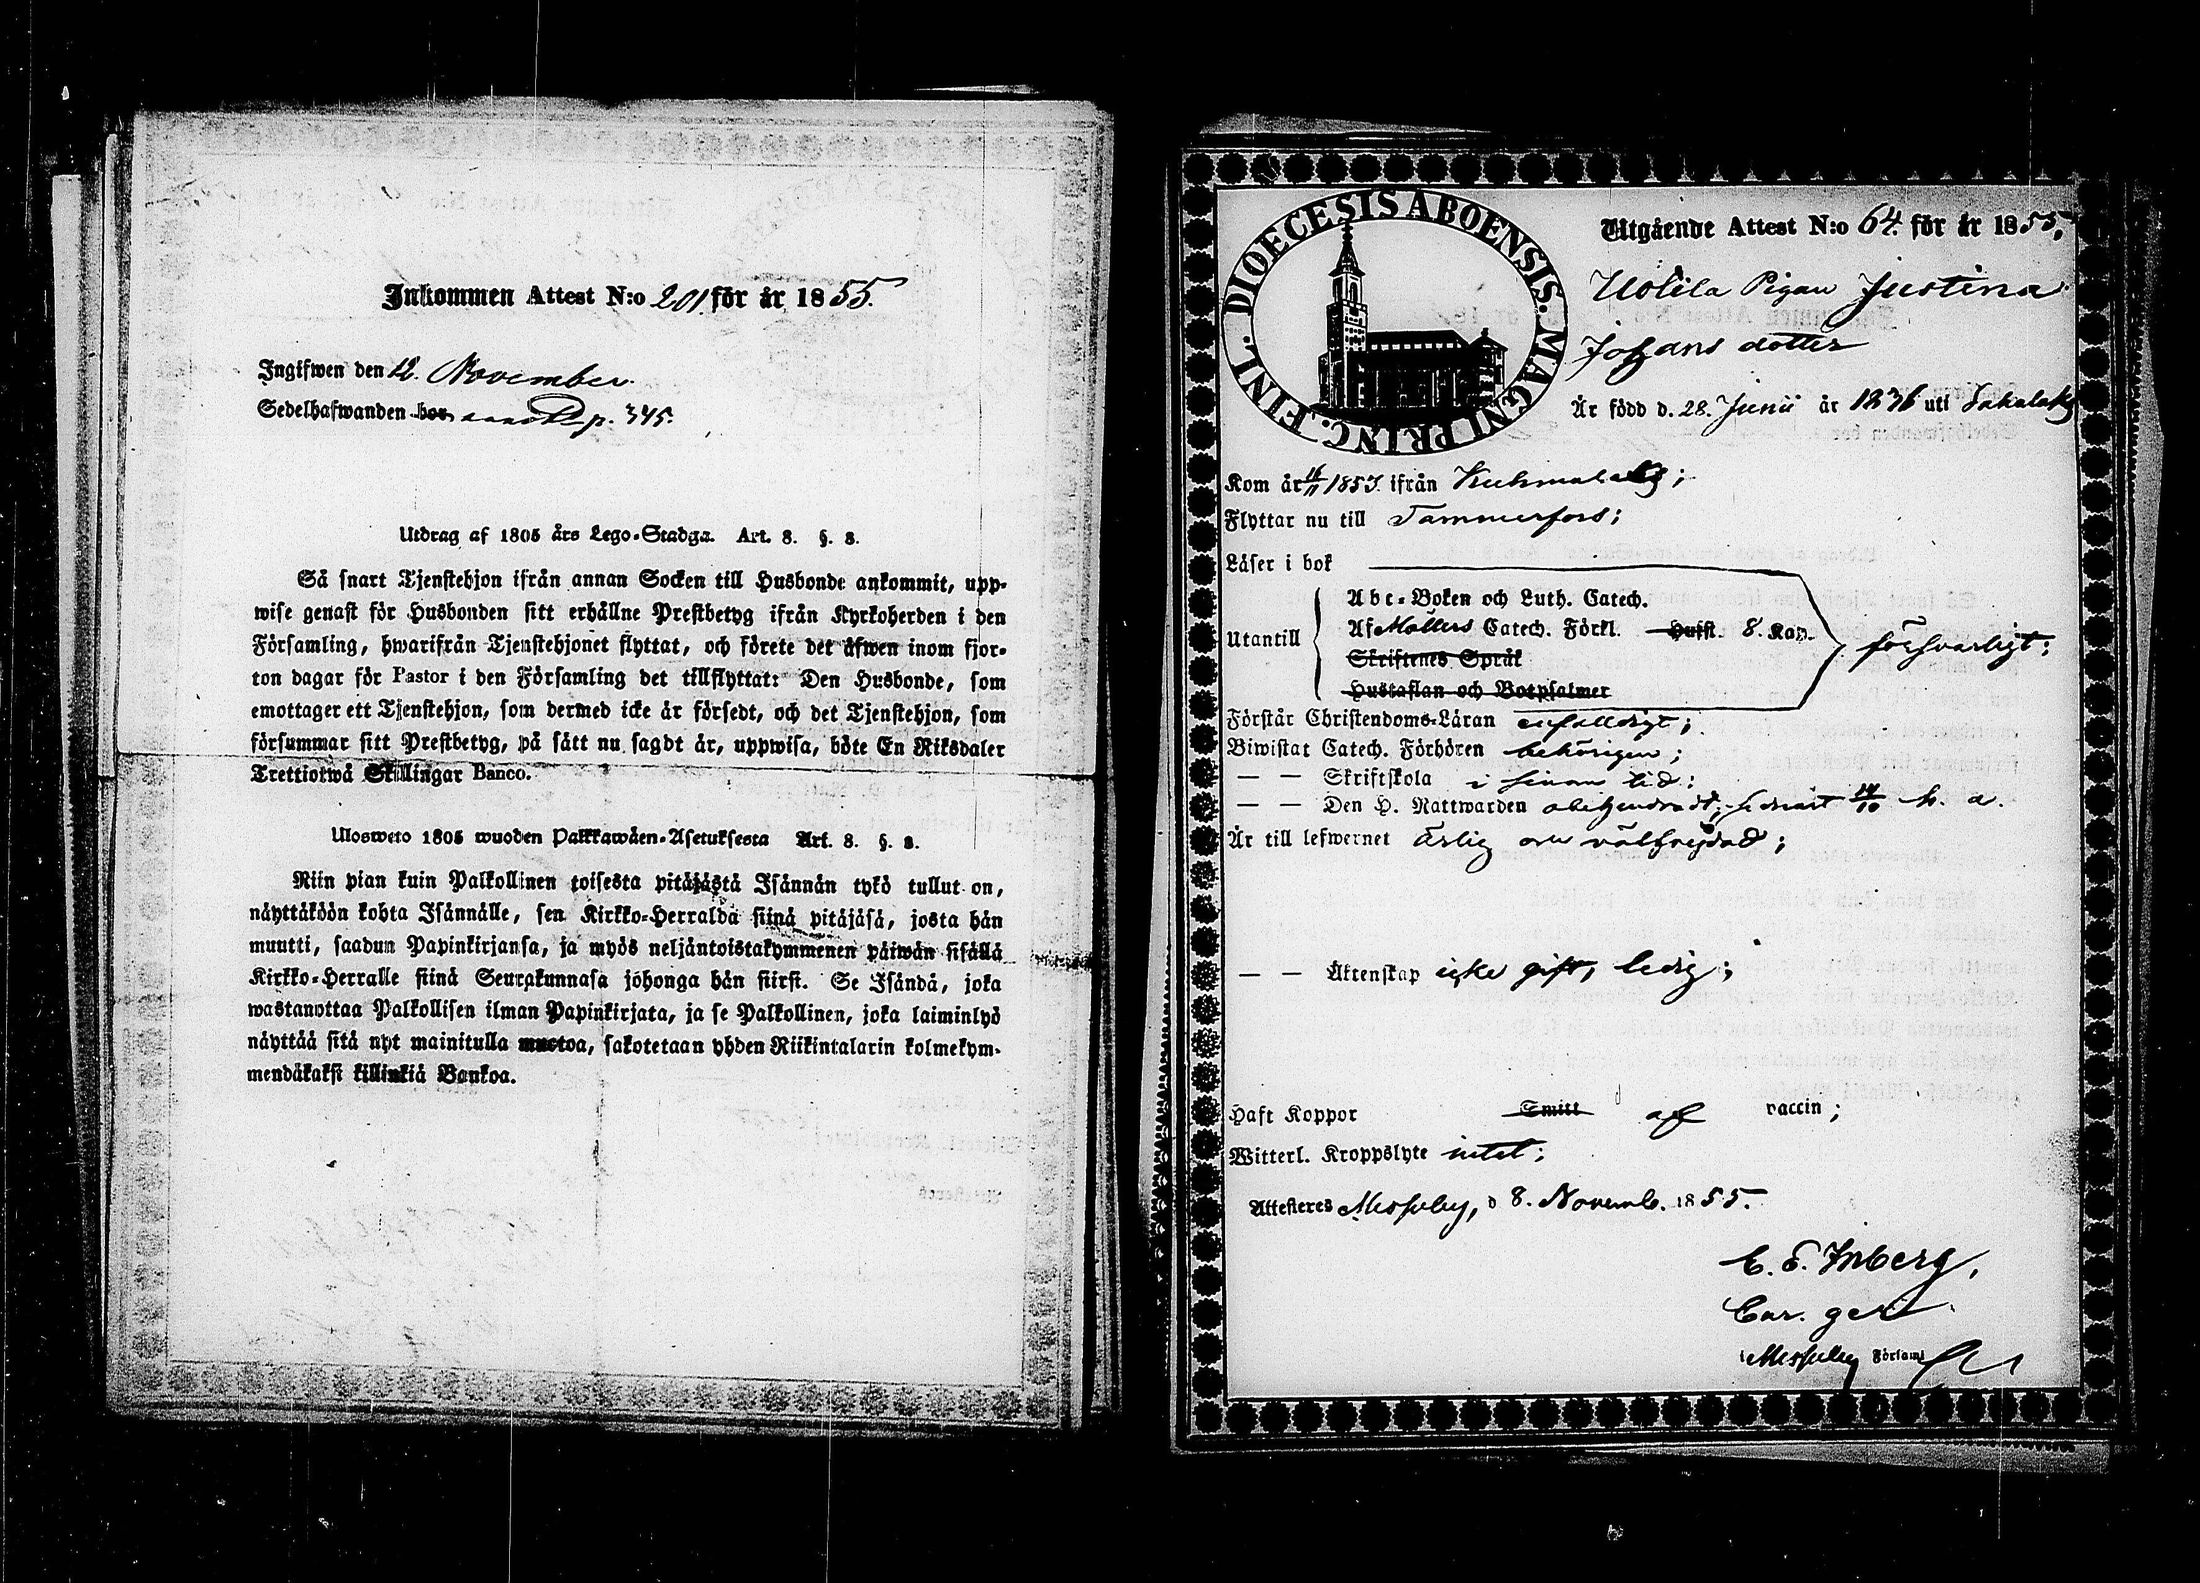 Inkommen Attest N:o 201. för år 1855.
Ingifwen den 12. November.
Sedelhafwanden bor p. 345.
Utdrag af 1805 års Lego-Stadga. Art. 8. §. 8.
Så snart Tjenstehjon ifrån annan Socken till Husbonde ankommit, upp-
wise genast för Husbonden sitt erhållne Prestbetyg ifrån Kyrkoherden i den
Församling, hwarifrån Tjenstehjonet flyttat, och förete det äfwen inom fjor-
ton dagar för Pastor i den Församling det tillflyttat: Den Husbonde, som
emottager ett Tjenstehjon, som dermed icke är försedt, och det Tjenstehjon, som
försummar sitt Prestbetyg, på sätt nu sagdt är, uppwisa, böte En Riksdaler
Trettiotwå Skillingar Banco.
Ulosweto 1805 wuoden Palkkawäen-Asetuksesta Art. 8. §. 8.
Niin pian kuin Palkollinen toisesta pitäjästä Isännän tykö tullut on,
näyttäköön kohta Isännälle, sen Kirkko-Herralda siinä pitäjäsä, josta hän
muutti, saadun Papinkirjansa, ja myös neljäntoistakymmenen päiwän sisällä
Kirkko-Herralle siinä Seurakunnasa johonga hän siirsi. Se Isändä, joka
wastanottaa Palkollisen ilman Papinkirjata, ja se Palkollinen, joka laiminlyö
näyttää sitä nyt mainitulla muotoa, sakotetaan yhden Riikintalarin kolmekym-
mendäkaksi killinkiä Bankoa.
DIOECESIS ABOENSIS. MAGNI PRINC. FINL.
Utgående Attest N:o 64. för år 1855,
Uotila Pigan Justina
Johans dotter
Är född d. 28. Junii år 1836 uti Sahalaks
Kom år 1853 ifrån Kuhmalaks;
Flyttar nu till Tammerfors;
Läser i bok
Utantill
Abc-Boken och Luth. Catech.
Af Möllers Catech. Förkl. Husst. 8. Kap.
Skriftenes Språk
Hustaflan och Botpsalmer
försvarligt;
Förstår Christendoms-Läran enfalldigt;
Biwistat Catech. Förhören behörigen;
— — Skriftskola i sinom tid;
— — Den H. Nattwarden obehindradt, sednast 14/10 h. a.
Är till lefwernet ärlig och välfrejdad;
— — Äktenskap icke gift, ledig;
Haft Koppor Smitt af vaccin;
Witterl. Kroppslyte intet;
Attesteras Messuby, d 8. Novemb. 1855.
C. E. Inberg,
i Messuby Församl